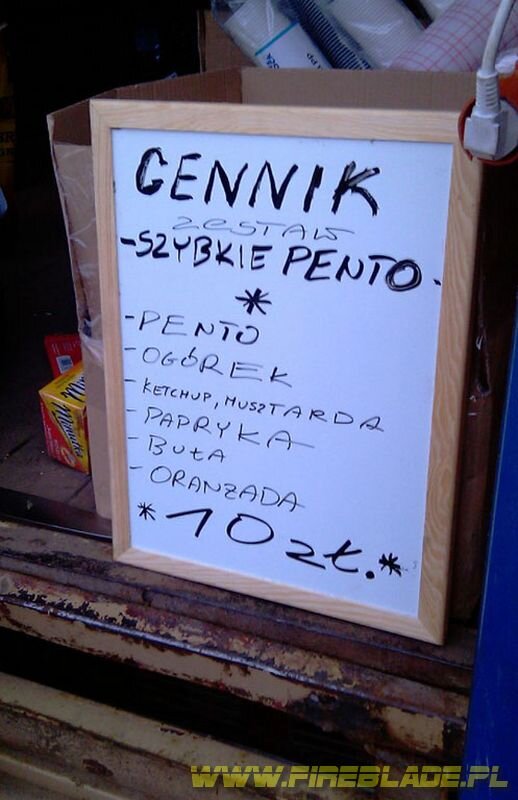 CENNIK
ZESTAW
-SZYBKIE PENTO-
*
-PENTO
-OGÓREK
-KETCHUP, MUSZTARDA
-PAPRYKA
-BUŁA
-ORANŻADA
*10 zł.*
WWW.FIREBLADE.PL